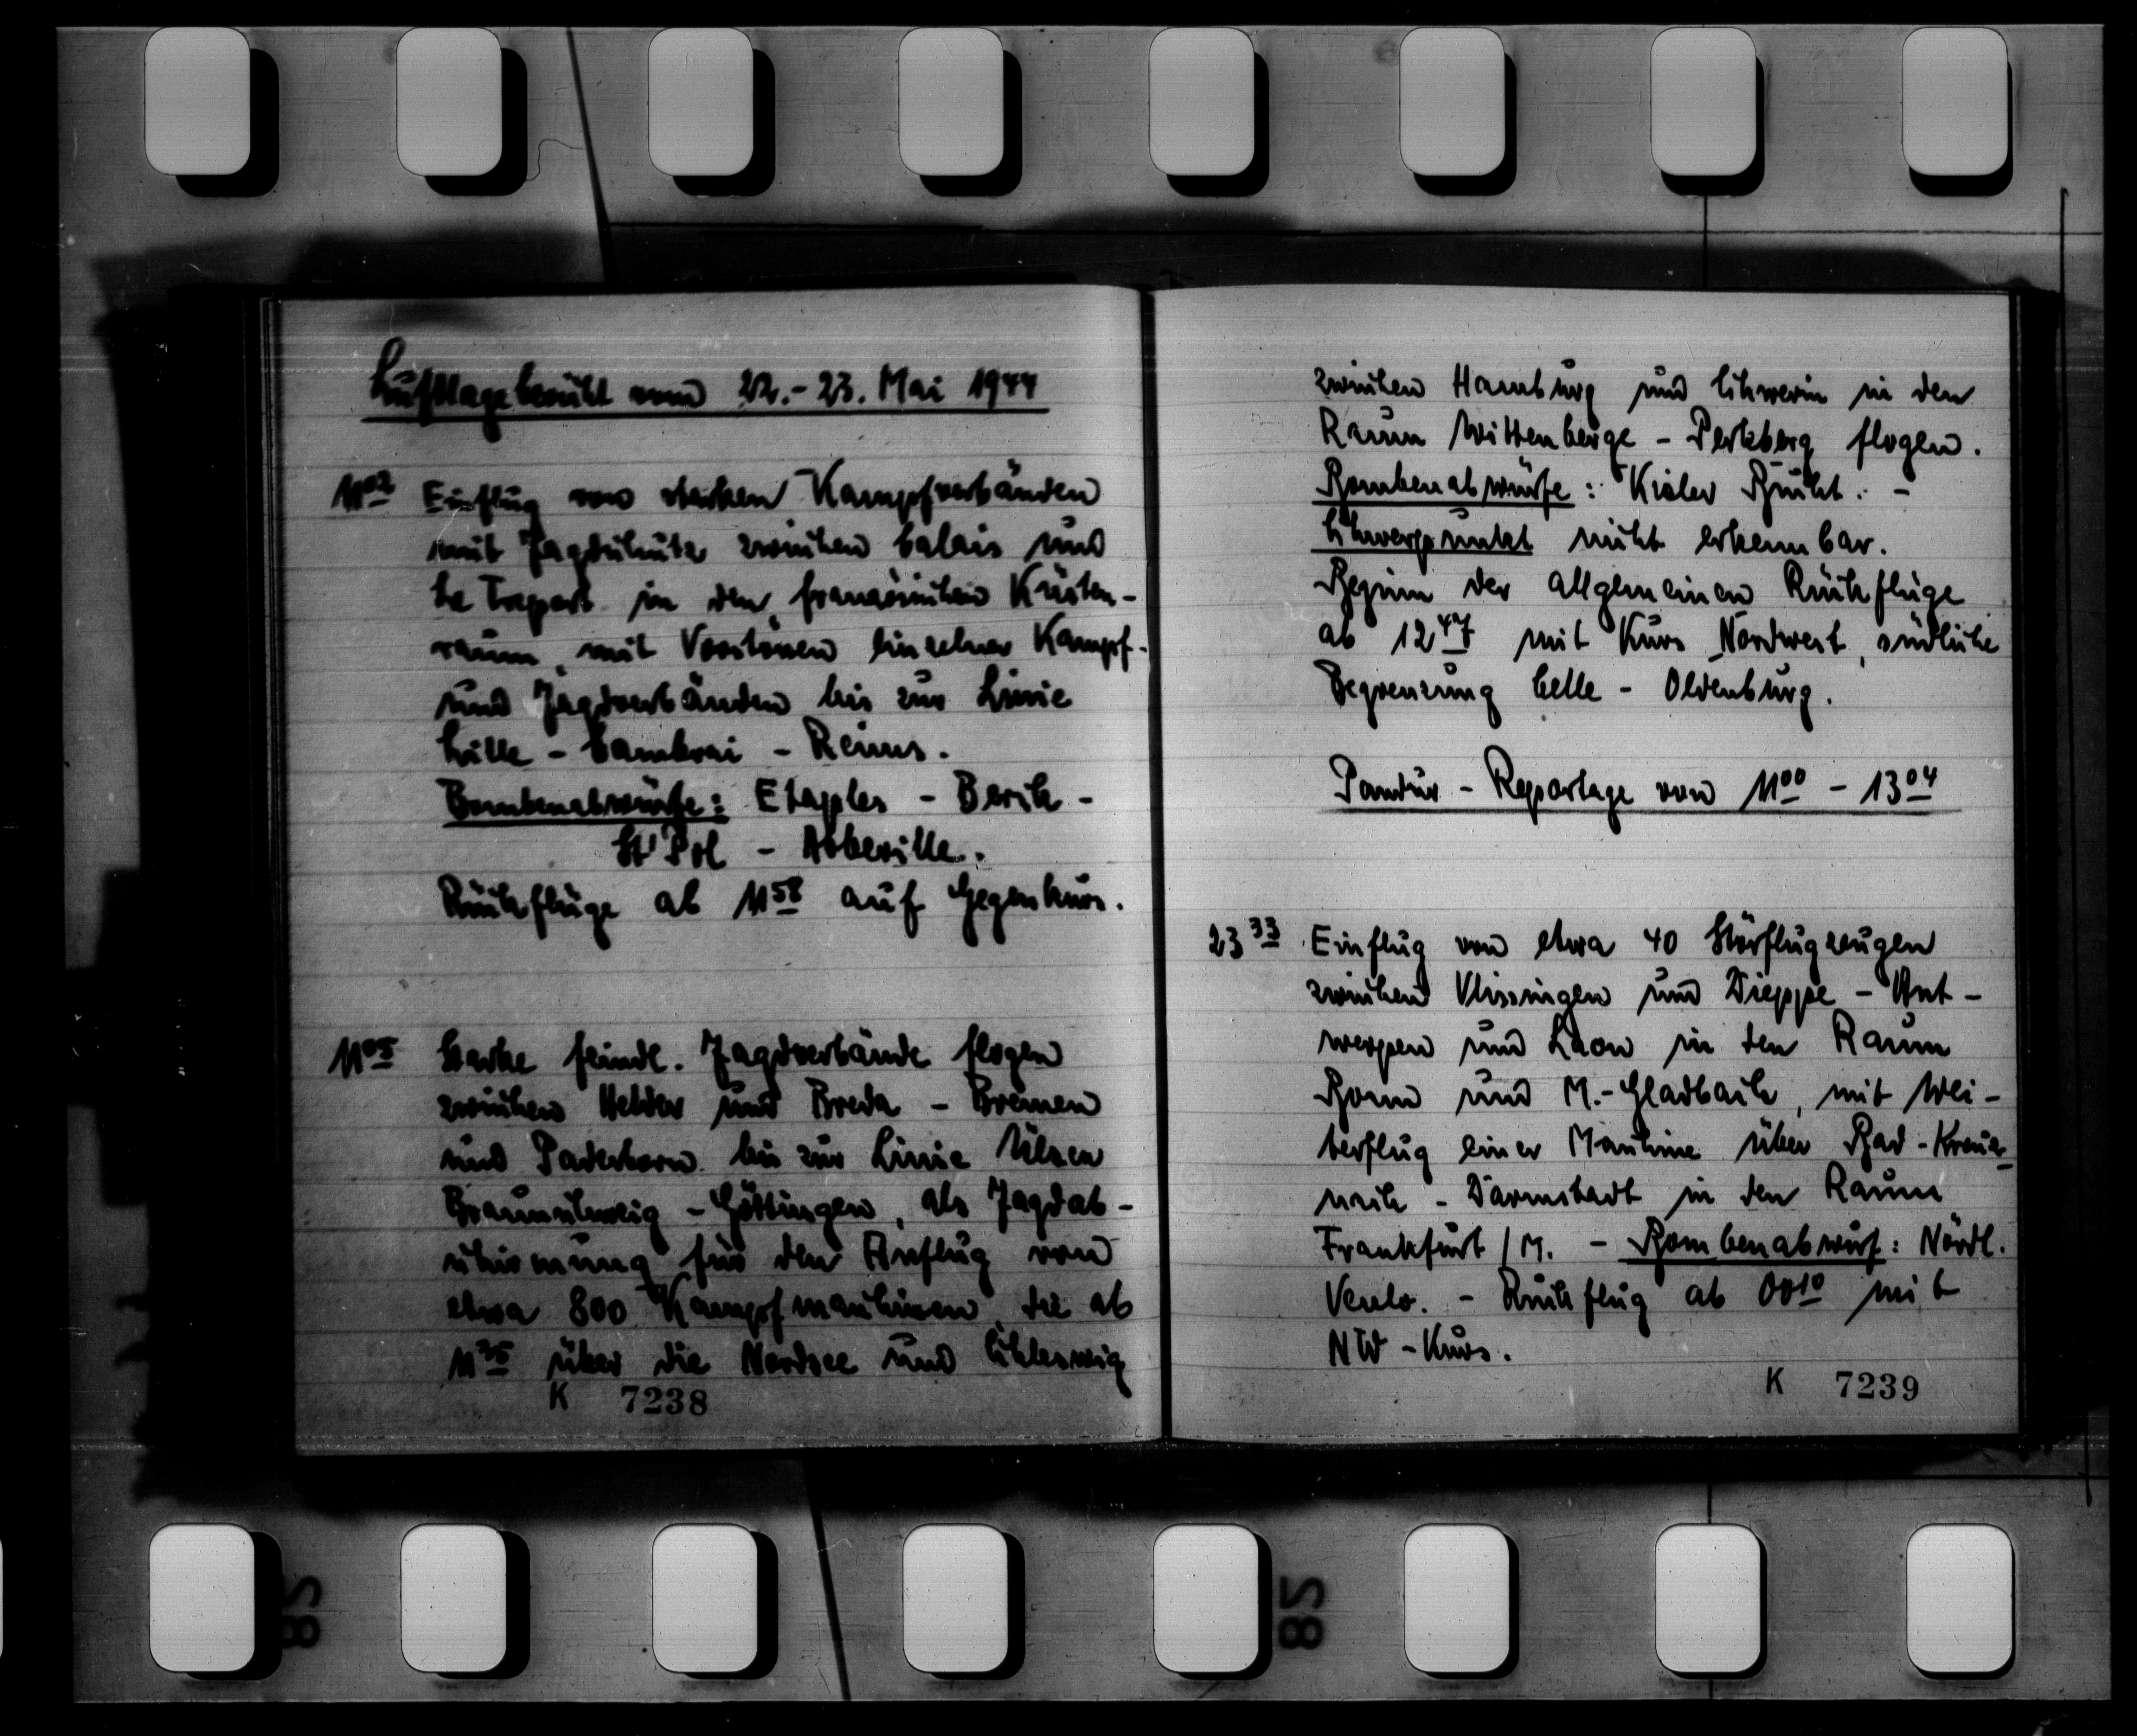 Luftlagebericht vom 22.-23. Mai 1944
11⁰² Einflug von starken Kampfverbänden
mit Jagdschutz zwischen Calais und
Le Treport in den französischen Küsten-
raum, mit Vorstössen einzelner Kampf-
und Jagdverbänden bis zur Linie
Lille - Cambrai - Reims.
Bombenabwürfe: Etaples - Berck -
St Pol - Abbeville.
Rückflüge ab 11⁵⁸ auf Gegenkurs.
11⁰⁵ Starke feindl. Jagdverbände flogen
zwischen Helder und Breda - Bremen
und Paderborn bis zur Linie Ülzen
Braunschweig - Göttingen, als Jagdab-
schirmung für den Anflug von
etwa 800 Kampfmaschinen, die ab
11³⁵ über die Nordsee und Schleswig
K 7238
zwischen Hamburg und Schwerin in den
Raum Wittenberge - Perleberg flogen.
Bombenabwürfe: Kieler Bucht. -
Schwerpunkt nicht erkennbar.
Beginn der allgemeinen Rückflüge
ab 12⁴⁷ mit Kurs Nordwest, südliche
Begrenzung Celle - Oldenburg.
Pandur - Reportage von 11⁰⁰ - 13⁰⁴
23³³ Einflug von etwa 40 Störflugzeugen
zwischen Vlissingen und Dieppe - Ant-
werpen und Laon in den Raum
Bonn und M.-Gladbach, mit Wei-
terflug einer Maschine über Bad-Kreuz-
nach - Darmstadt in den Raum
Frankfurt/M. - Bombenabwurf: Nördl.
Venlo. - Rückflug ab 00¹⁰ mit
NW-Kurs.
K 7239
28
28